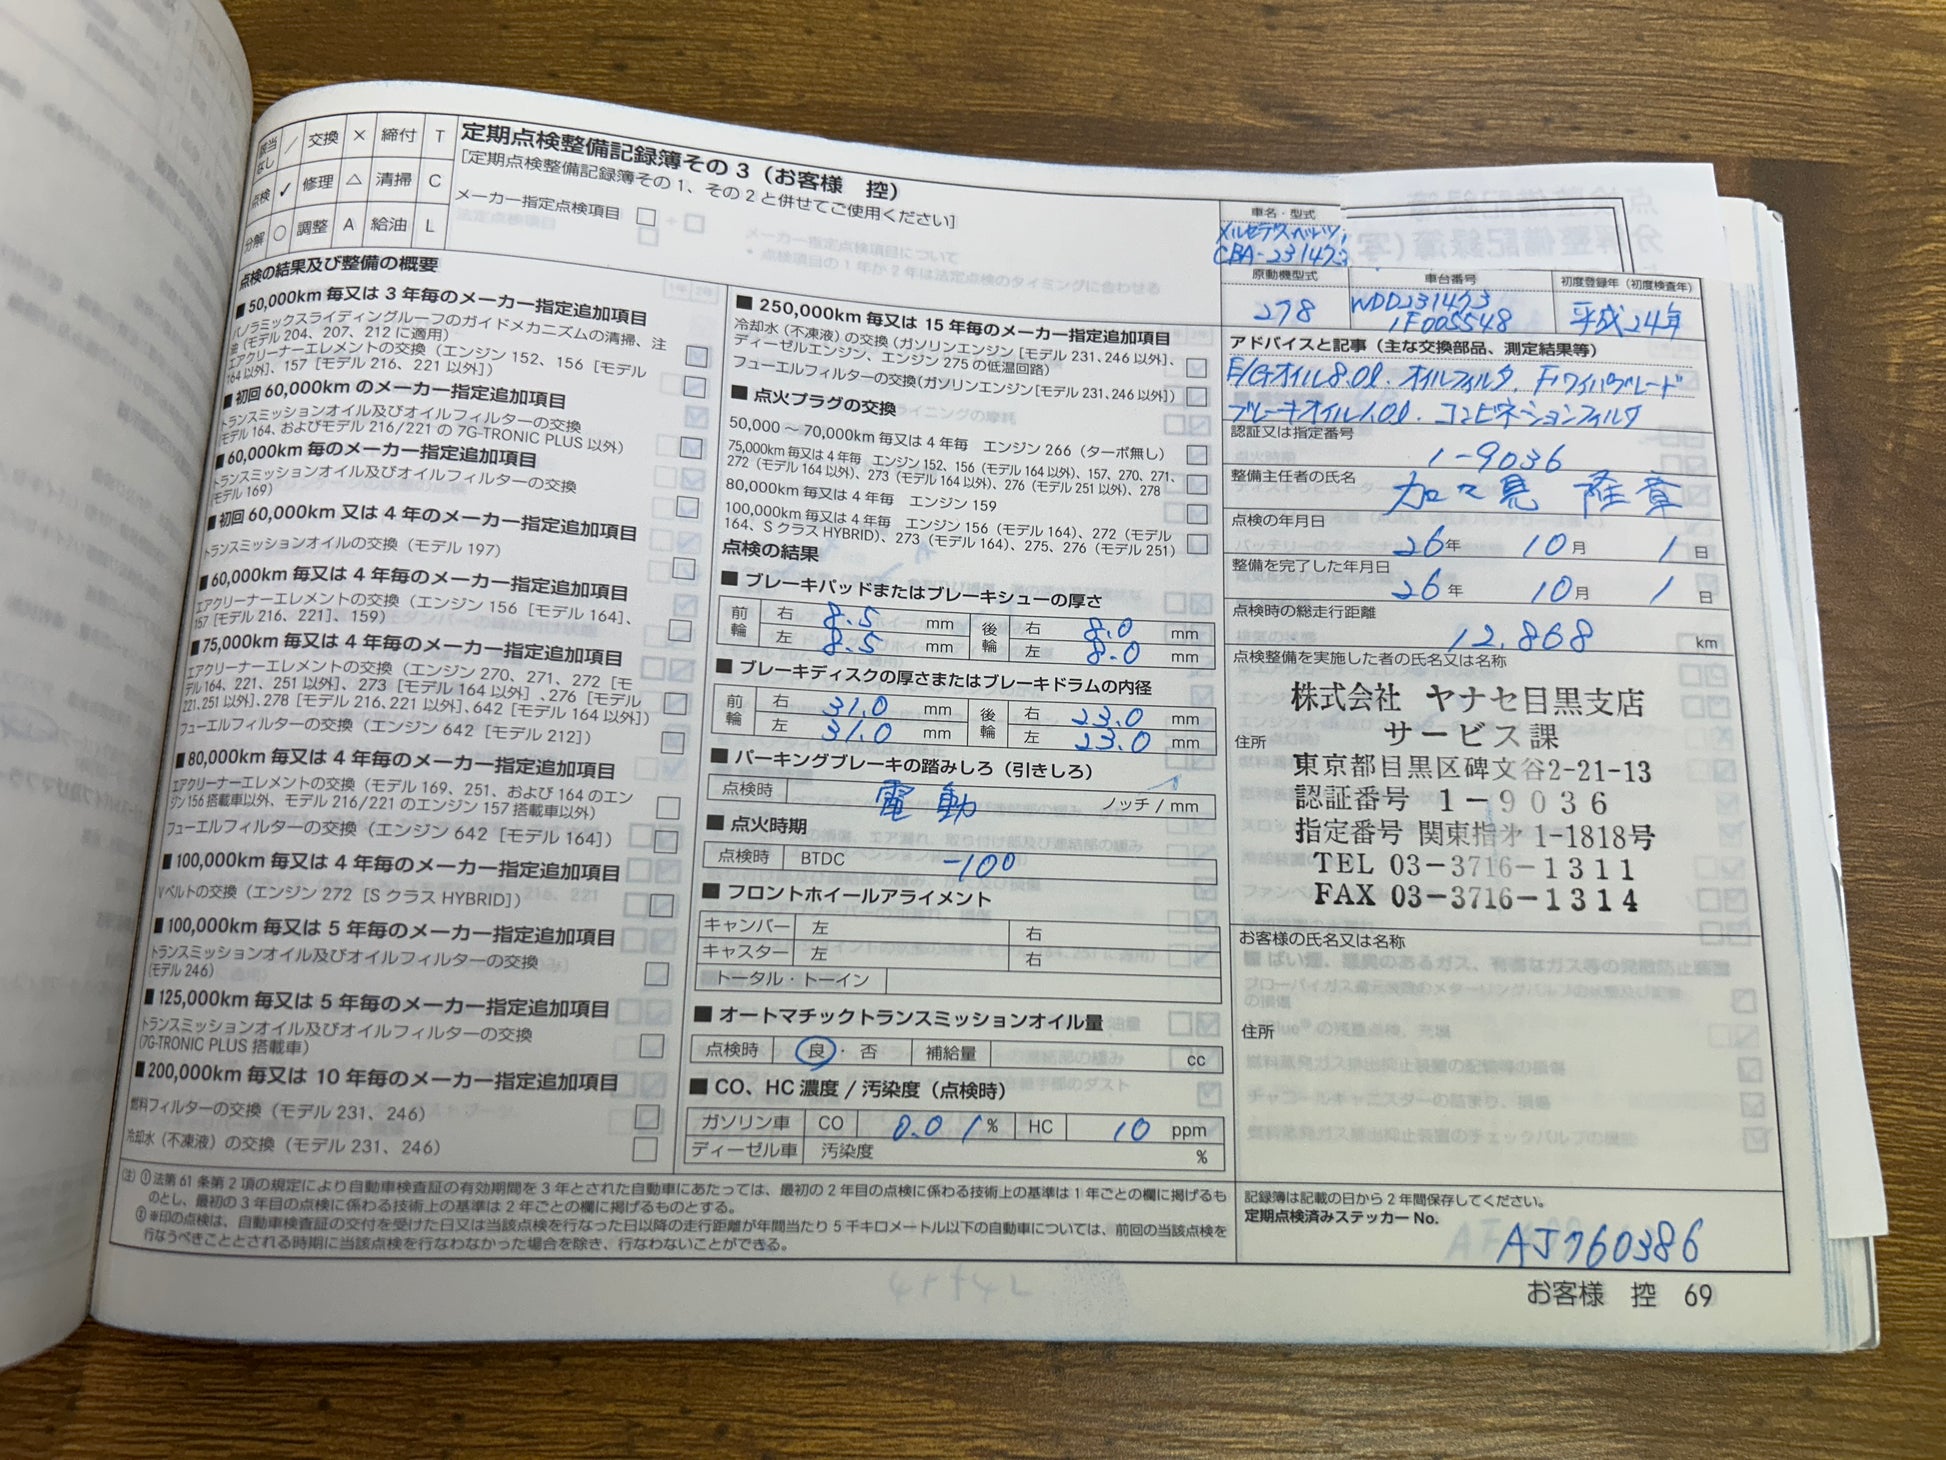 該当なし ／ 交換 × 締付 T
点検 ✓ 修理 △ 清掃 C
分解 ○ 調整 A 給油 L
定期点検整備記録簿その3（お客様　控）
[定期点検整備記録簿その1、その2と併せてご使用ください]
メーカー指定点検項目 □
点検の結果及び整備の概要
■50,000km毎又は3年毎のメーカー指定追加項目
パノラミックスライディングルーフのガイドメカニズムの清掃、注
油（モデル204、207、212に適用）
エアクリーナーエレメントの交換（エンジン152、156［モデル
164以外]、157［モデル216、221以外]）
■初回60,000kmのメーカー指定追加項目
トランスミッションオイル及びオイルフィルターの交換
(モデル164、およびモデル216/221の7G-TRONIC PLUS以外)
■60,000km毎のメーカー指定追加項目
トランスミッションオイル及びオイルフィルターの交換
(モデル169)
■初回60,000km又は4年のメーカー指定追加項目
トランスミッションオイルの交換（モデル197）
■60,000km毎又は4年毎のメーカー指定追加項目
エアクリーナーエレメントの交換（エンジン156［モデル164］、
157［モデル216、221]、159）
■75,000km毎又は4年毎のメーカー指定追加項目
エアクリーナーエレメントの交換（エンジン270、271、272［モ
デル164、221、251以外]、273［モデル164以外］、276［モデル
221､251以外]､278［モデル216､221以外]､642［モデル164以外]）
フューエルフィルターの交換（エンジン642［モデル212]）
■80,000km毎又は4年毎のメーカー指定追加項目
エアクリーナーエレメントの交換（モデル169、251、および164のエン
ジン156搭載車以外、モデル216/221のエンジン157搭載車以外）
フューエルフィルターの交換（エンジン642［モデル164]）
■100,000km毎又は4年毎のメーカー指定追加項目
Vベルトの交換（エンジン272［SクラスHYBRID]）
■100,000km毎又は5年毎のメーカー指定追加項目
トランスミッションオイル及びオイルフィルターの交換
(モデル246)
■125,000km毎又は5年毎のメーカー指定追加項目
トランスミッションオイル及びオイルフィルターの交換
(7G-TRONIC PLUS搭載車)
■200,000km毎又は10年毎のメーカー指定追加項目
燃料フィルターの交換（モデル231、246）
冷却水（不凍液）の交換（モデル231、246）
■250,000km毎又は15年毎のメーカー指定追加項目
冷却水（不凍液）の交換（ガソリンエンジン［モデル231､246以外]､
ディーゼルエンジン、エンジン275の低温回路）
フューエルフィルターの交換(ガソリンエンジン[モデル231､246以外])
■点火プラグの交換
50,000～70,000km毎又は4年毎　エンジン266（ターボ無し）
75,000km毎又は4年毎　エンジン152、156（モデル164以外）、157、270、271、
272（モデル164以外）、273（モデル164以外）、276（モデル251以外）、278
80,000km毎又は4年毎　エンジン159
100,000km毎又は4年毎　エンジン156（モデル164）、272（モデル
164、SクラスHYBRID）、273（モデル164）、275、276（モデル251）
点検の結果
■ブレーキパッドまたはブレーキシューの厚さ
前輪 右 8.5 mm 後輪 右 8.0 mm
左 8.5 mm 左 8.0 mm
■ブレーキディスクの厚さまたはブレーキドラムの内径
前輪 右 31.0 mm 後輪 右 23.0 mm
左 31.0 mm 左 23.0 mm
■パーキングブレーキの踏みしろ（引きしろ）
点検時 電動 ノッチ / mm
■点火時期
点検時 BTDC -100
■フロントホイールアライメント
キャンバー 左 右
キャスター 左 右
トータル・トーイン
■オートマチックトランスミッションオイル量
点検時 良・否 補給量 cc
■CO、HC濃度 / 汚染度（点検時）
ガソリン車 CO 0.01 % HC 10 ppm
ディーゼル車 汚染度 %
車名・型式
メルセデスベンツ,
CBA-231473
原動機型式 車台番号 初度登録年（初度検査年）
278 WDD231473
1F005548 平成24年
アドバイスと記事（主な交換部品、測定結果等）
E/Gオイル8.0l. オイルフィルタ. Fワイパブレード
ブレーキオイル1.0l. コンビネーションフィルタ
認証又は指定番号
1-9036
整備主任者の氏名
加々見 隆章
点検の年月日
26年 10月 1日
整備を完了した年月日
26年 10月 1日
点検時の総走行距離
12,868 km
点検整備を実施した者の氏名又は名称
株式会社 ヤナセ目黒支店
サービス課
住所
東京都目黒区碑文谷2-21-13
認証番号 1-9036
指定番号 関東指オ 1-1818号
TEL 03-3716-1311
FAX 03-3716-1314
お客様の氏名又は名称
住所
記録簿は記載の日から2年間保存してください。
定期点検済みステッカーNo.
AJ760386
(注) ①法第61条第2項の規定により自動車検査証の有効期間を3年とされた自動車にあたっては、最初の2年目の点検に係わる技術上の基準は1年ごとの欄に掲げるも
のとし、最初の3年目の点検に係わる技術上の基準は2年ごとの欄に掲げるものとする。
②※印の点検は、自動車検査証の交付を受けた日又は当該点検を行なった日以降の走行距離が年間当たり5千キロメートル以下の自動車については、前回の当該点検を
行なうべきこととされる時期に当該点検を行なわなかった場合を除き、行なわないことができる。
お客様　控　69